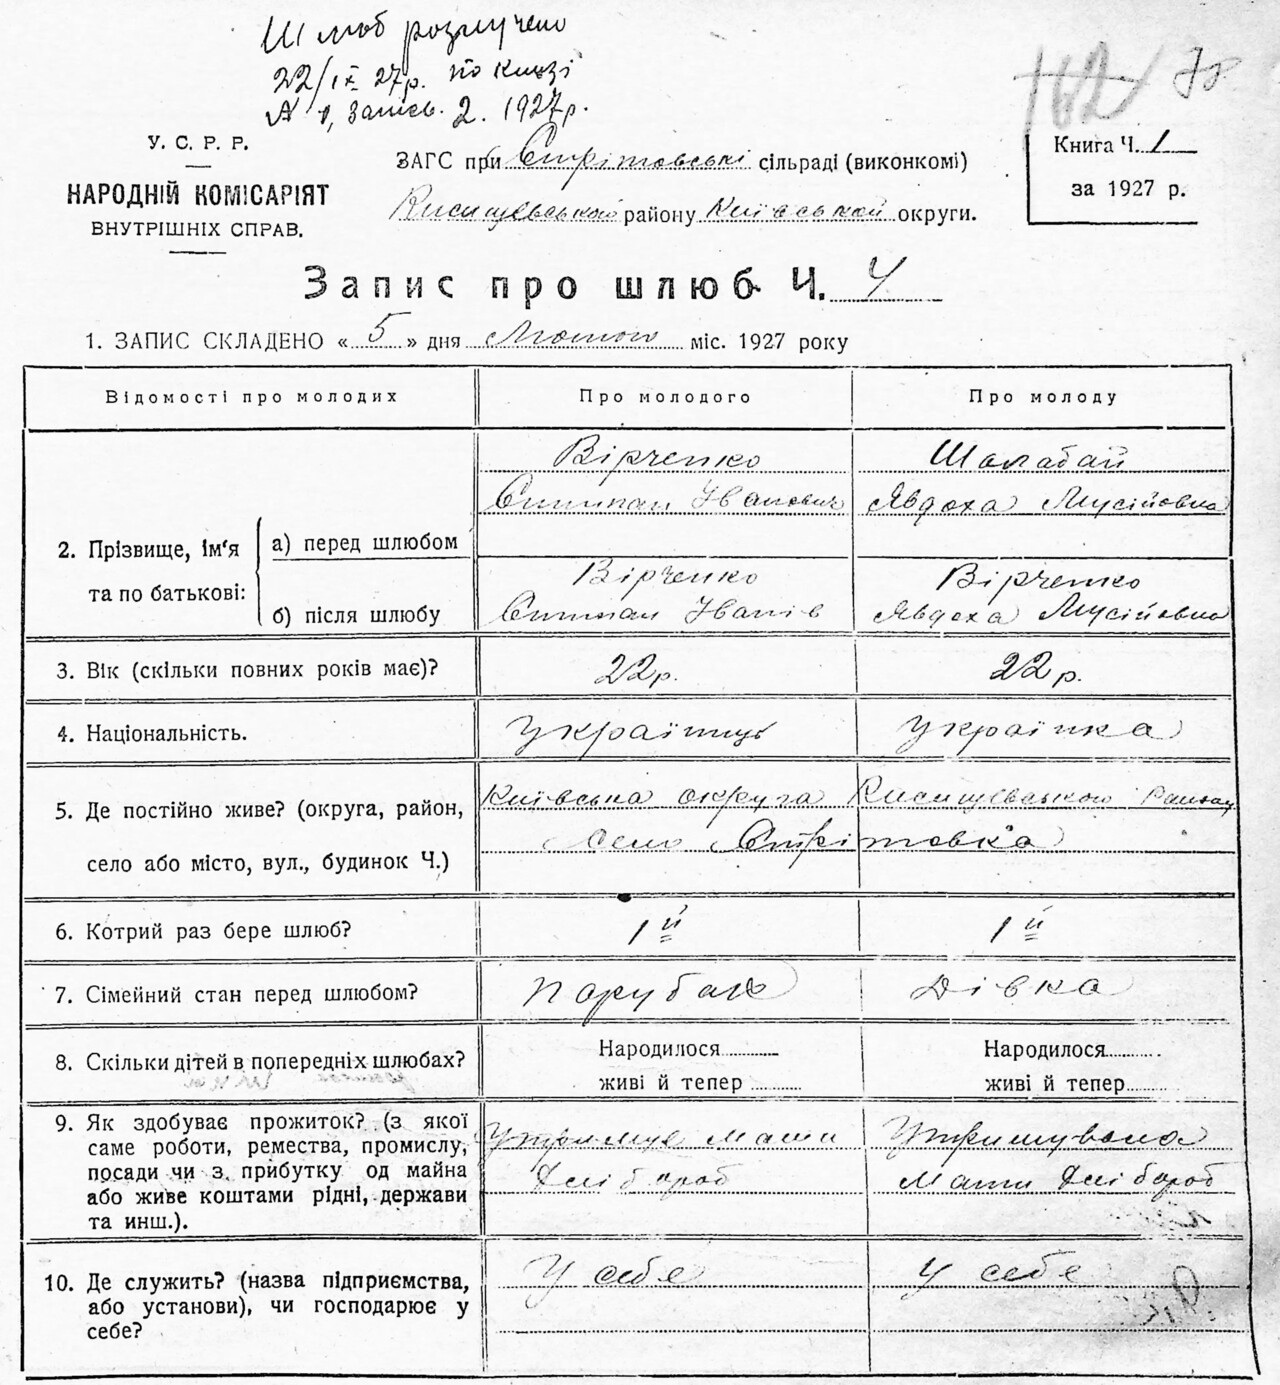 Шлюб розлучено
22/IX 27р. по книзі
№ 1, запись. 2. 1927р.
162 78
У. С. Р. Р.
НАРОДНІЙ КОМІСАРІЯТ
ВНУТРІШНІХ СПРАВ.
ЗАГС при Стрітовські сільраді (виконкомі)
району Київської округи.
Книга Ч. 1
за 1927 р.
Запис про шлюб Ч. 4
1. ЗАПИС СКЛАДЕНО « 5 » дня Лютого міс. 1927 року
Відомості про молодих Про молодого Про молоду
2. Прізвище, ім'я та по батькові:
а) перед шлюбом
Вірченко
Степан Іванович
Шалабай
Явдоха Мусійовна
б) після шлюбу
Вірченко
Степан Іванів
Вірченко
Явдоха Мусійовна
3. Вік (скільки повних років має)? 22р. 22р.
4. Національність. Українець Українка
5. Де постійно живе? (округа, район,
село або місто, вул., будинок Ч.)
Київська округа
Село Стрітовка
6. Котрий раз бере шлюб? 1й 1й
7. Сімейний стан перед шлюбом? Парубок Дівка
8. Скільки дітей в попередніх шлюбах?
Народилося
живі й тепер
Народилося
живі й тепер
9. Як здобуває прожиток? (з якої
саме роботи, ремества, промислу,
посади чи з прибутку од майна
або живе коштами рідні, держави
та инш.).
Утримує мати
Хлібороб
Утримувала
мати Хлібороб
10. Де служить? (назва підприємства,
або установи), чи господарює у
себе?
У себе
У себе